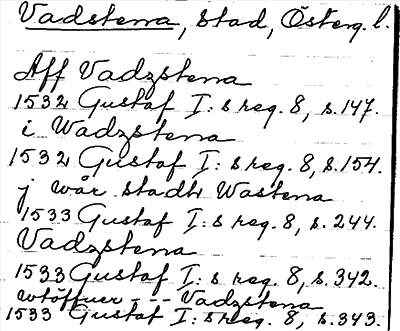 Vadstena, stad, Österg. l.
Aff Vadzstena
1532 Gustaf I: s reg. 8, s. 147.
i Wadzstena
1532 Gustaf I: s reg. 8, s. 154.
j wår stadh Wastena
1533 Gustaf I: s reg. 8, s. 244.
Vadzstena
1533 Gustaf I: s reg. 8, s. 342.
wtöffuer - - - Vadzstena
1533 Gustaf I: s reg. 8, s. 343.